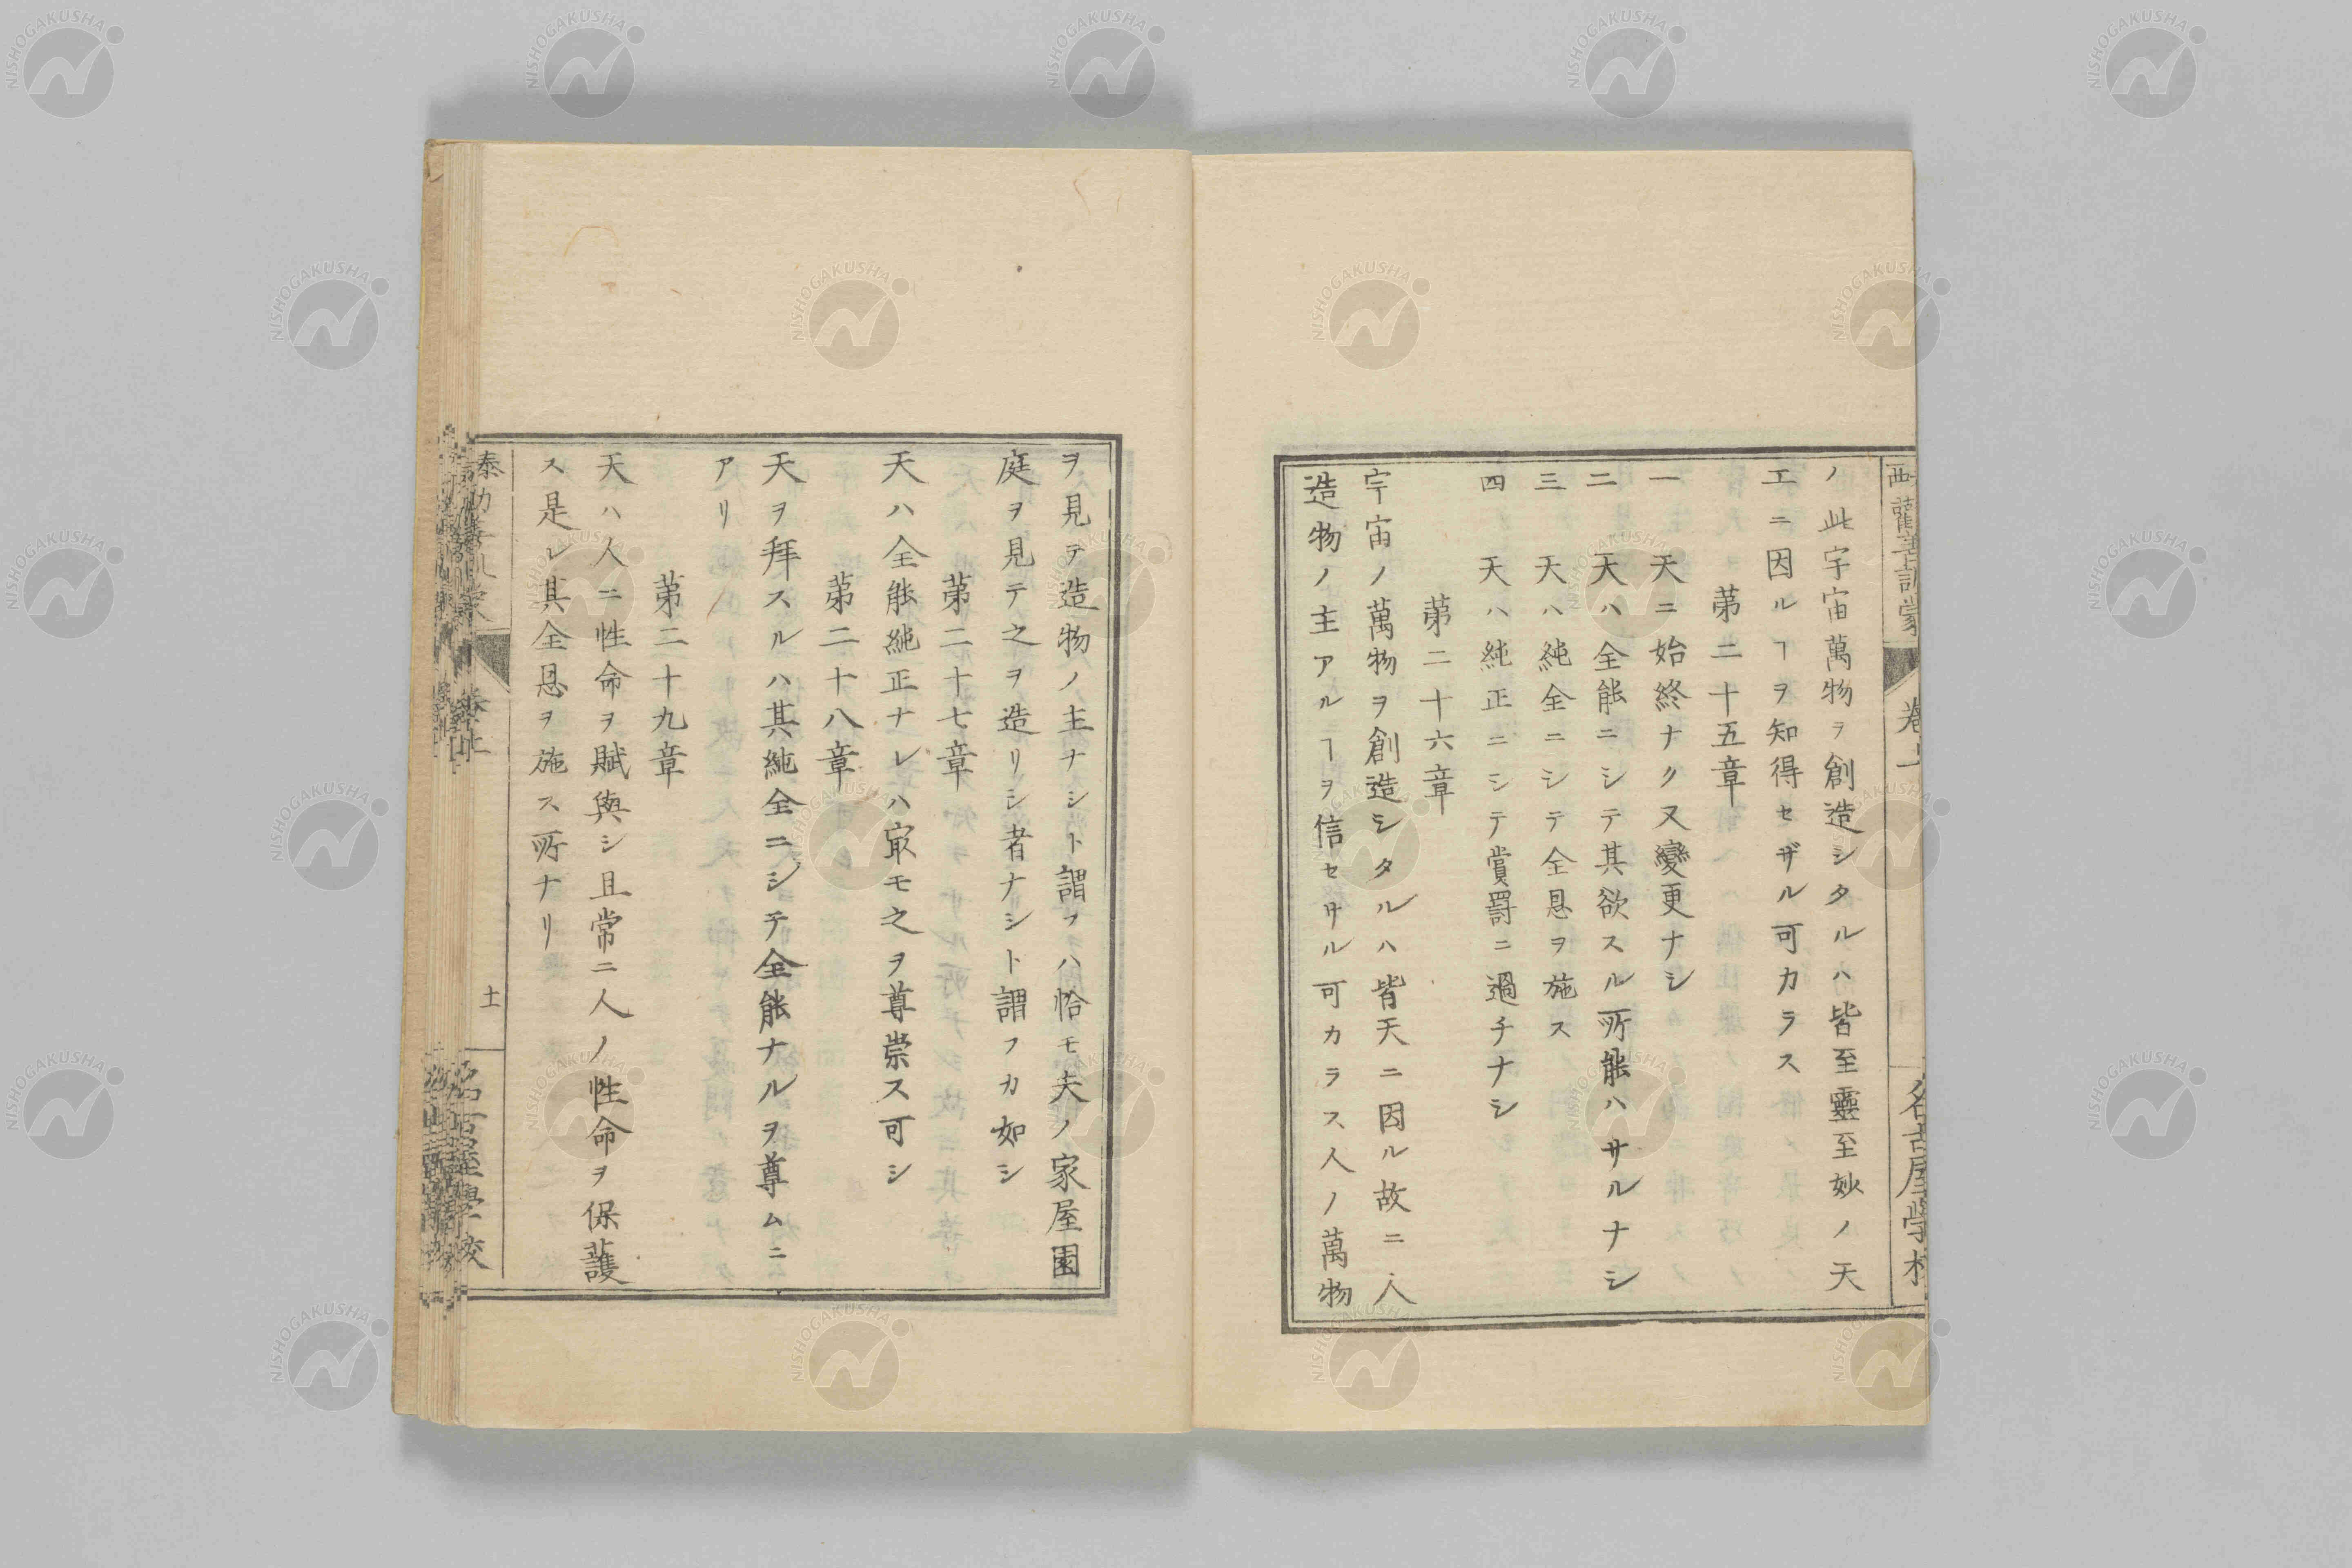 ノ此宇宙萬物ヲ創造シタルハ皆至靈至妙ノ天
工ニ因ルヿヲ知得セザル可カラス
第二十五章
一　天ニ始終ナク又變更ナシ
二　天ハ全能ニシテ其欲スル所能ハサルナシ
三　天ハ純全ニシテ全恩ヲ施ス
四　天ハ純正ニシテ賞罰ニ過チナシ
第二十六章
宇宙ノ萬物ヲ創造シタルハ皆天ニ因ル故ニ人
造物ノ主アルヿヲ信セサル可カラス人ノ萬物
ヲ見テ造物ノ主ナシト謂フハ恰モ夫ノ家屋園
庭ヲ見テ之ヲ造リシ者ナシト謂フカ如シ
第二十七章
天ハ全能純正ナレハ㝡モ之ヲ尊崇ス可シ
第二十八章
天ヲ拜スルハ其純全ニシテ全能ナルヲ尊ムニ
アリ
第二十九章
天ハ人ニ性命ヲ賦與シ且常ニ人ノ性命ヲ保護
ス是レ其全恩ヲ施ス所ナリ
勸善訓蒙
卷上
名古屋學校
NISHOGAKUSHA